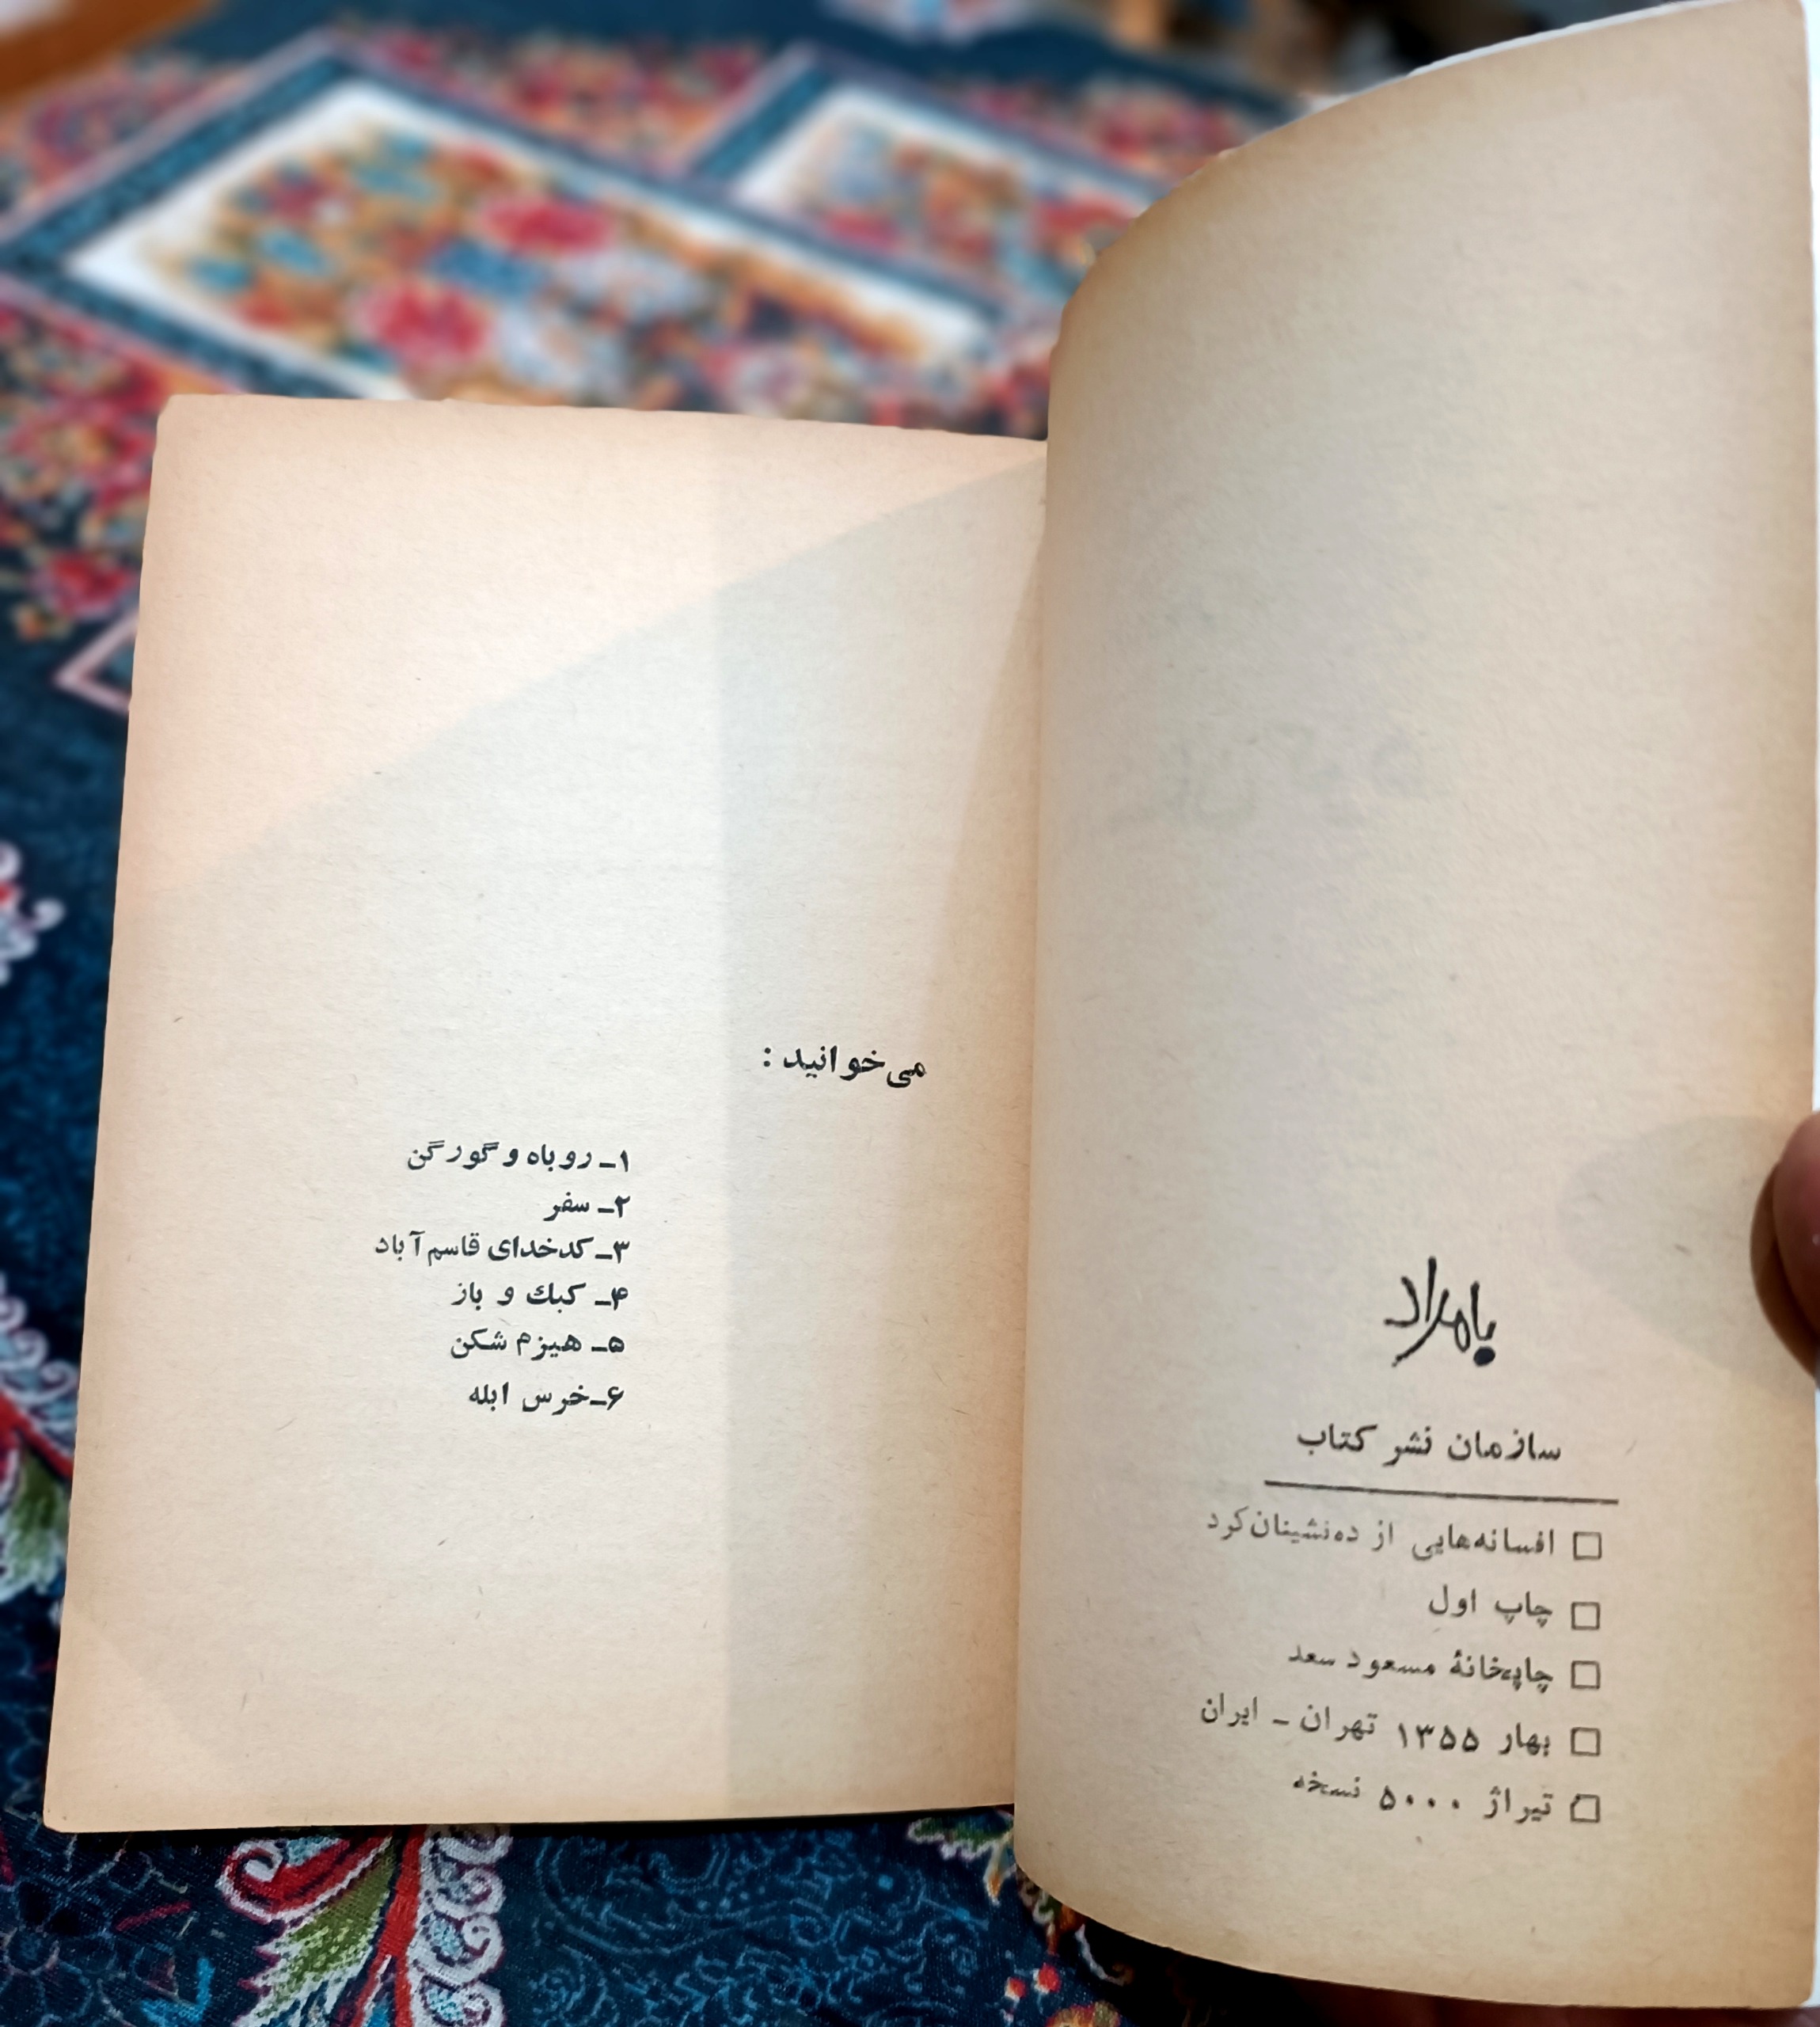 بامداد
سازمان نشر کتاب
افسانه‌هایی از ده‌نشینان کرد
چاپ اول
چاپخانهٔ مسعود سعد
بهار ۱۳۵۵ تهران ـ ایران
تیراژ ۵۰۰۰ نسخه
می‌خوانید :
۱ـ روباه و گورگن
۲ـ سفر
۳ـ کدخدای قاسم آباد
۴ـ کبك و باز
۵ـ هیزم شکن
۶ـ خرس ابله